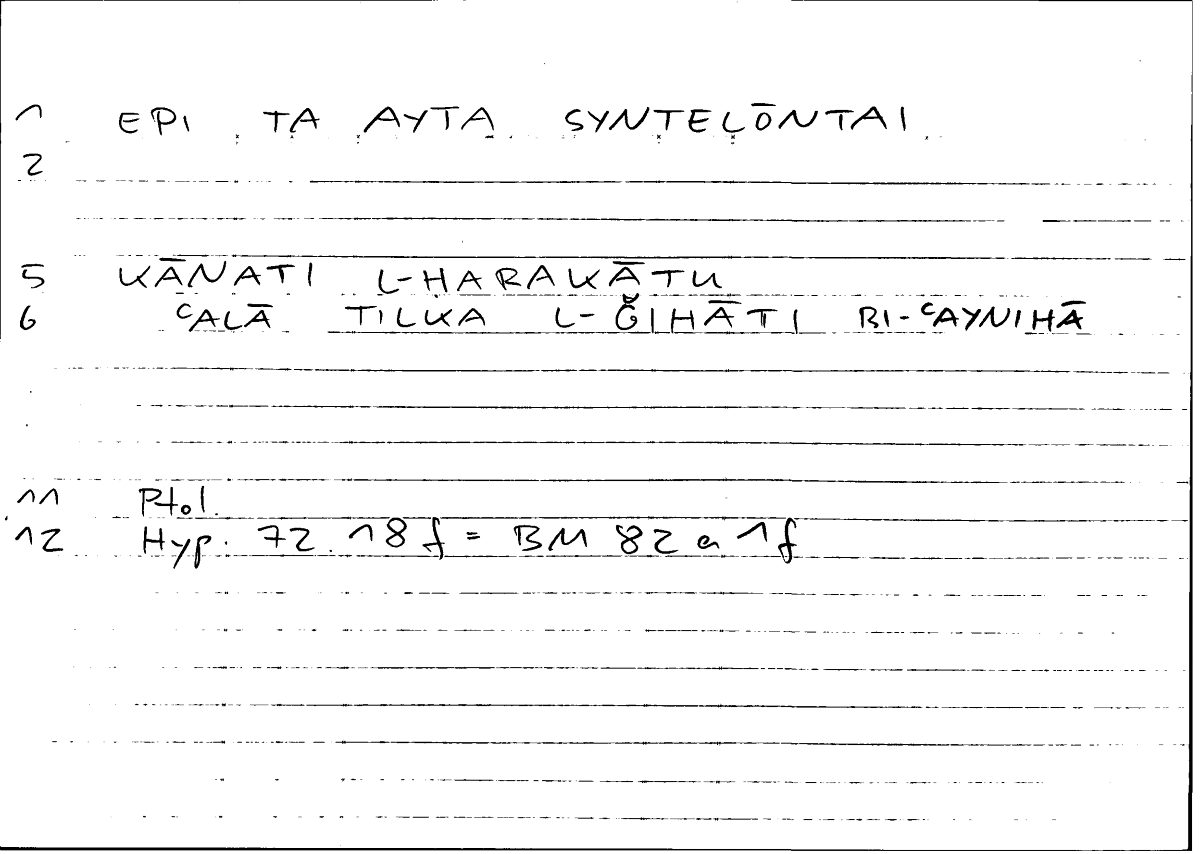 1 EPI TA AYTA SYNTELŌNTAI
2
5 KĀNATI L-HARAKĀTU
6 ʿALĀ TILKA L-ĞIHĀTI BI-ʿAYNIHĀ
11 Ptol.
12 Hyp. 72.18f = BM 82a1f